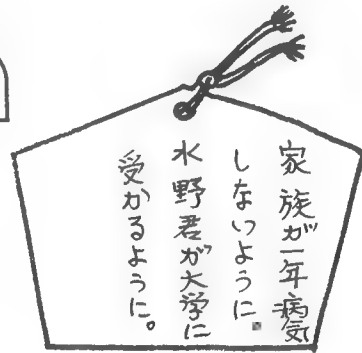 家族が一年病気
しないように。
水野君が大学に
受かるように。